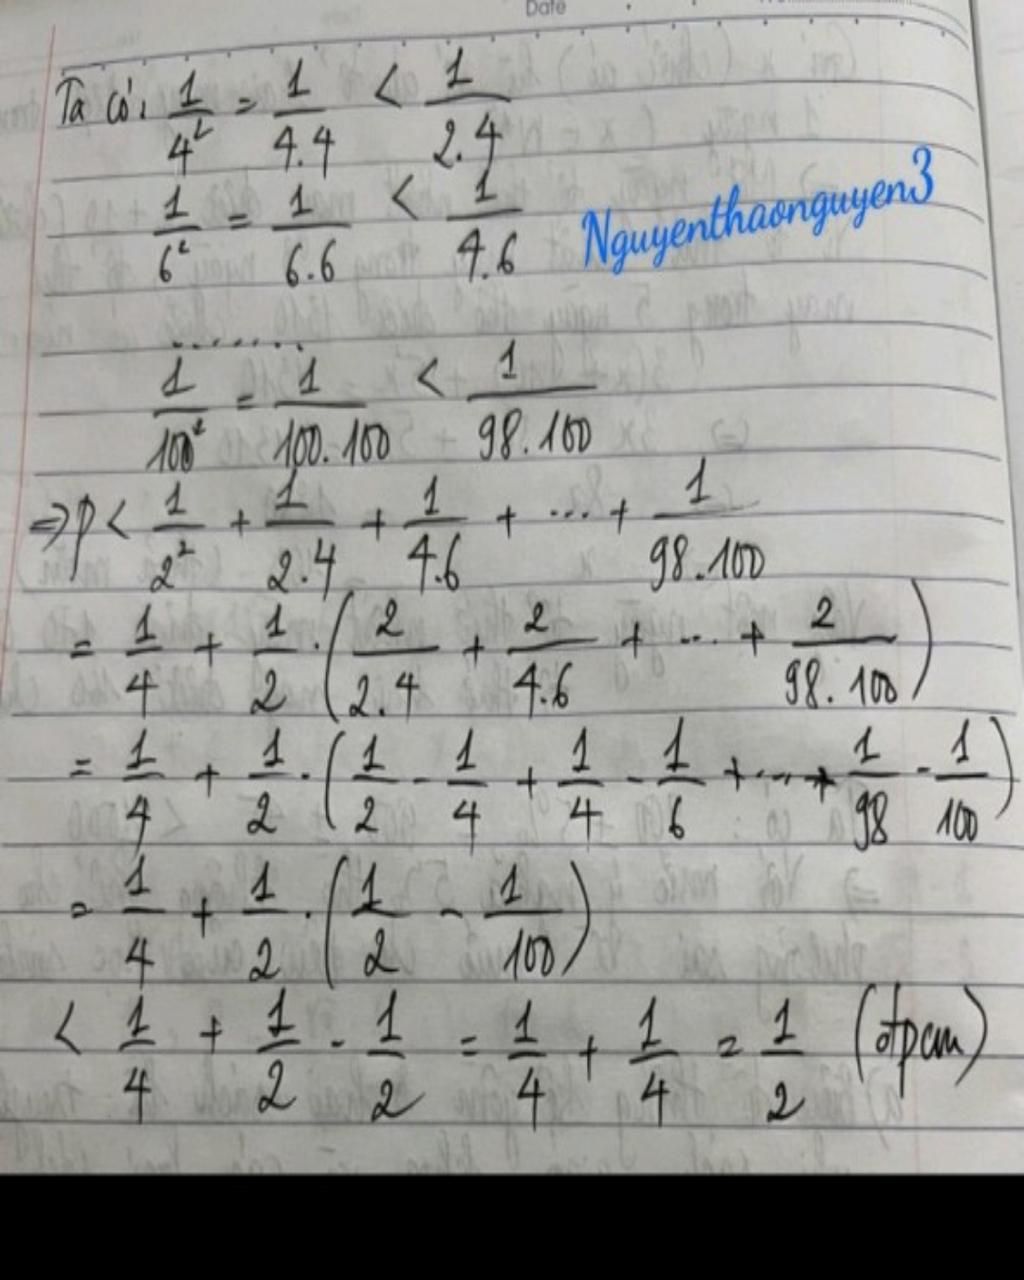 Date
Ta có: 1/4² = 1/4.4 < 1/2.4
1/6² = 1/6.6 < 1/4.6
Nguyenthaonguyen3
........
1/100² = 1/100.100 < 1/98.100
=> p < 1/2² + 1/2.4 + 1/4.6 + ... + 1/98.100
= 1/4 + 1/2 . (2/2.4 + 2/4.6 + ... + 2/98.100)
= 1/4 + 1/2 . (1/2 - 1/4 + 1/4 - 1/6 + ... + 1/98 - 1/100)
= 1/4 + 1/2 . (1/2 - 1/100)
< 1/4 + 1/2 - 1/2 = 1/4 + 1/4 = 1/2 (đpcm)